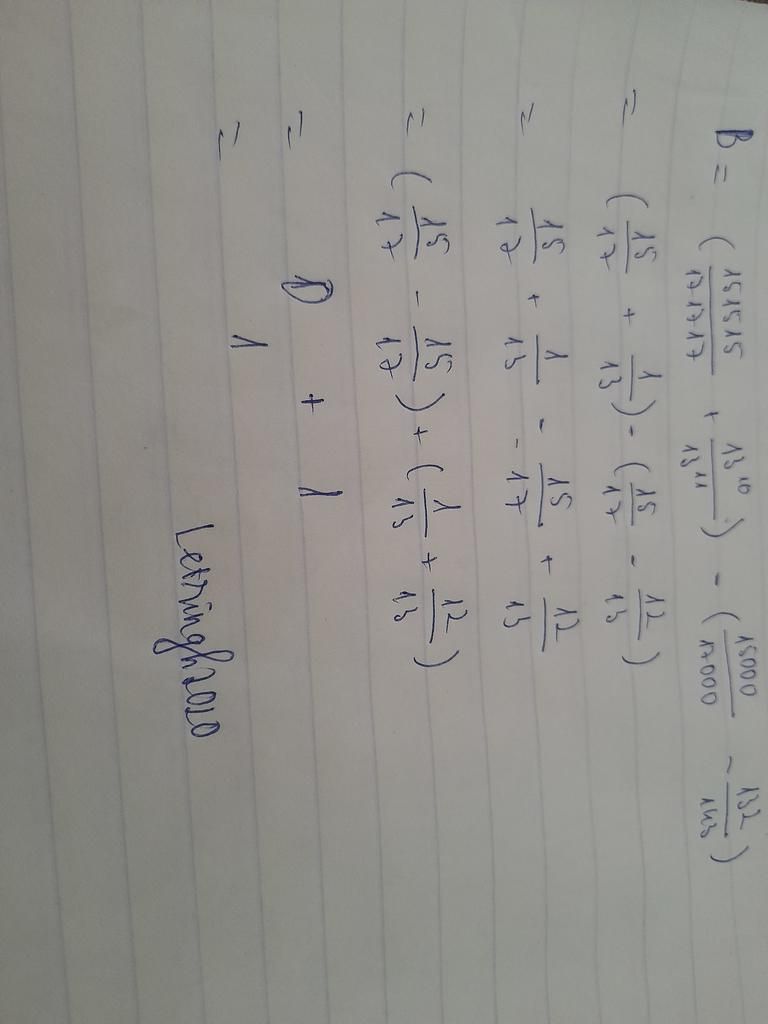 B = (151515/171717 + 13^10/13^11) - (15000/17000 - 132/143)
= (15/17 + 1/13) - (15/17 - 12/13)
= 15/17 + 1/13 - 15/17 + 12/13
= (15/17 - 15/17) + (1/13 + 12/13)
= 0 + 1
= 1
Letringh2010